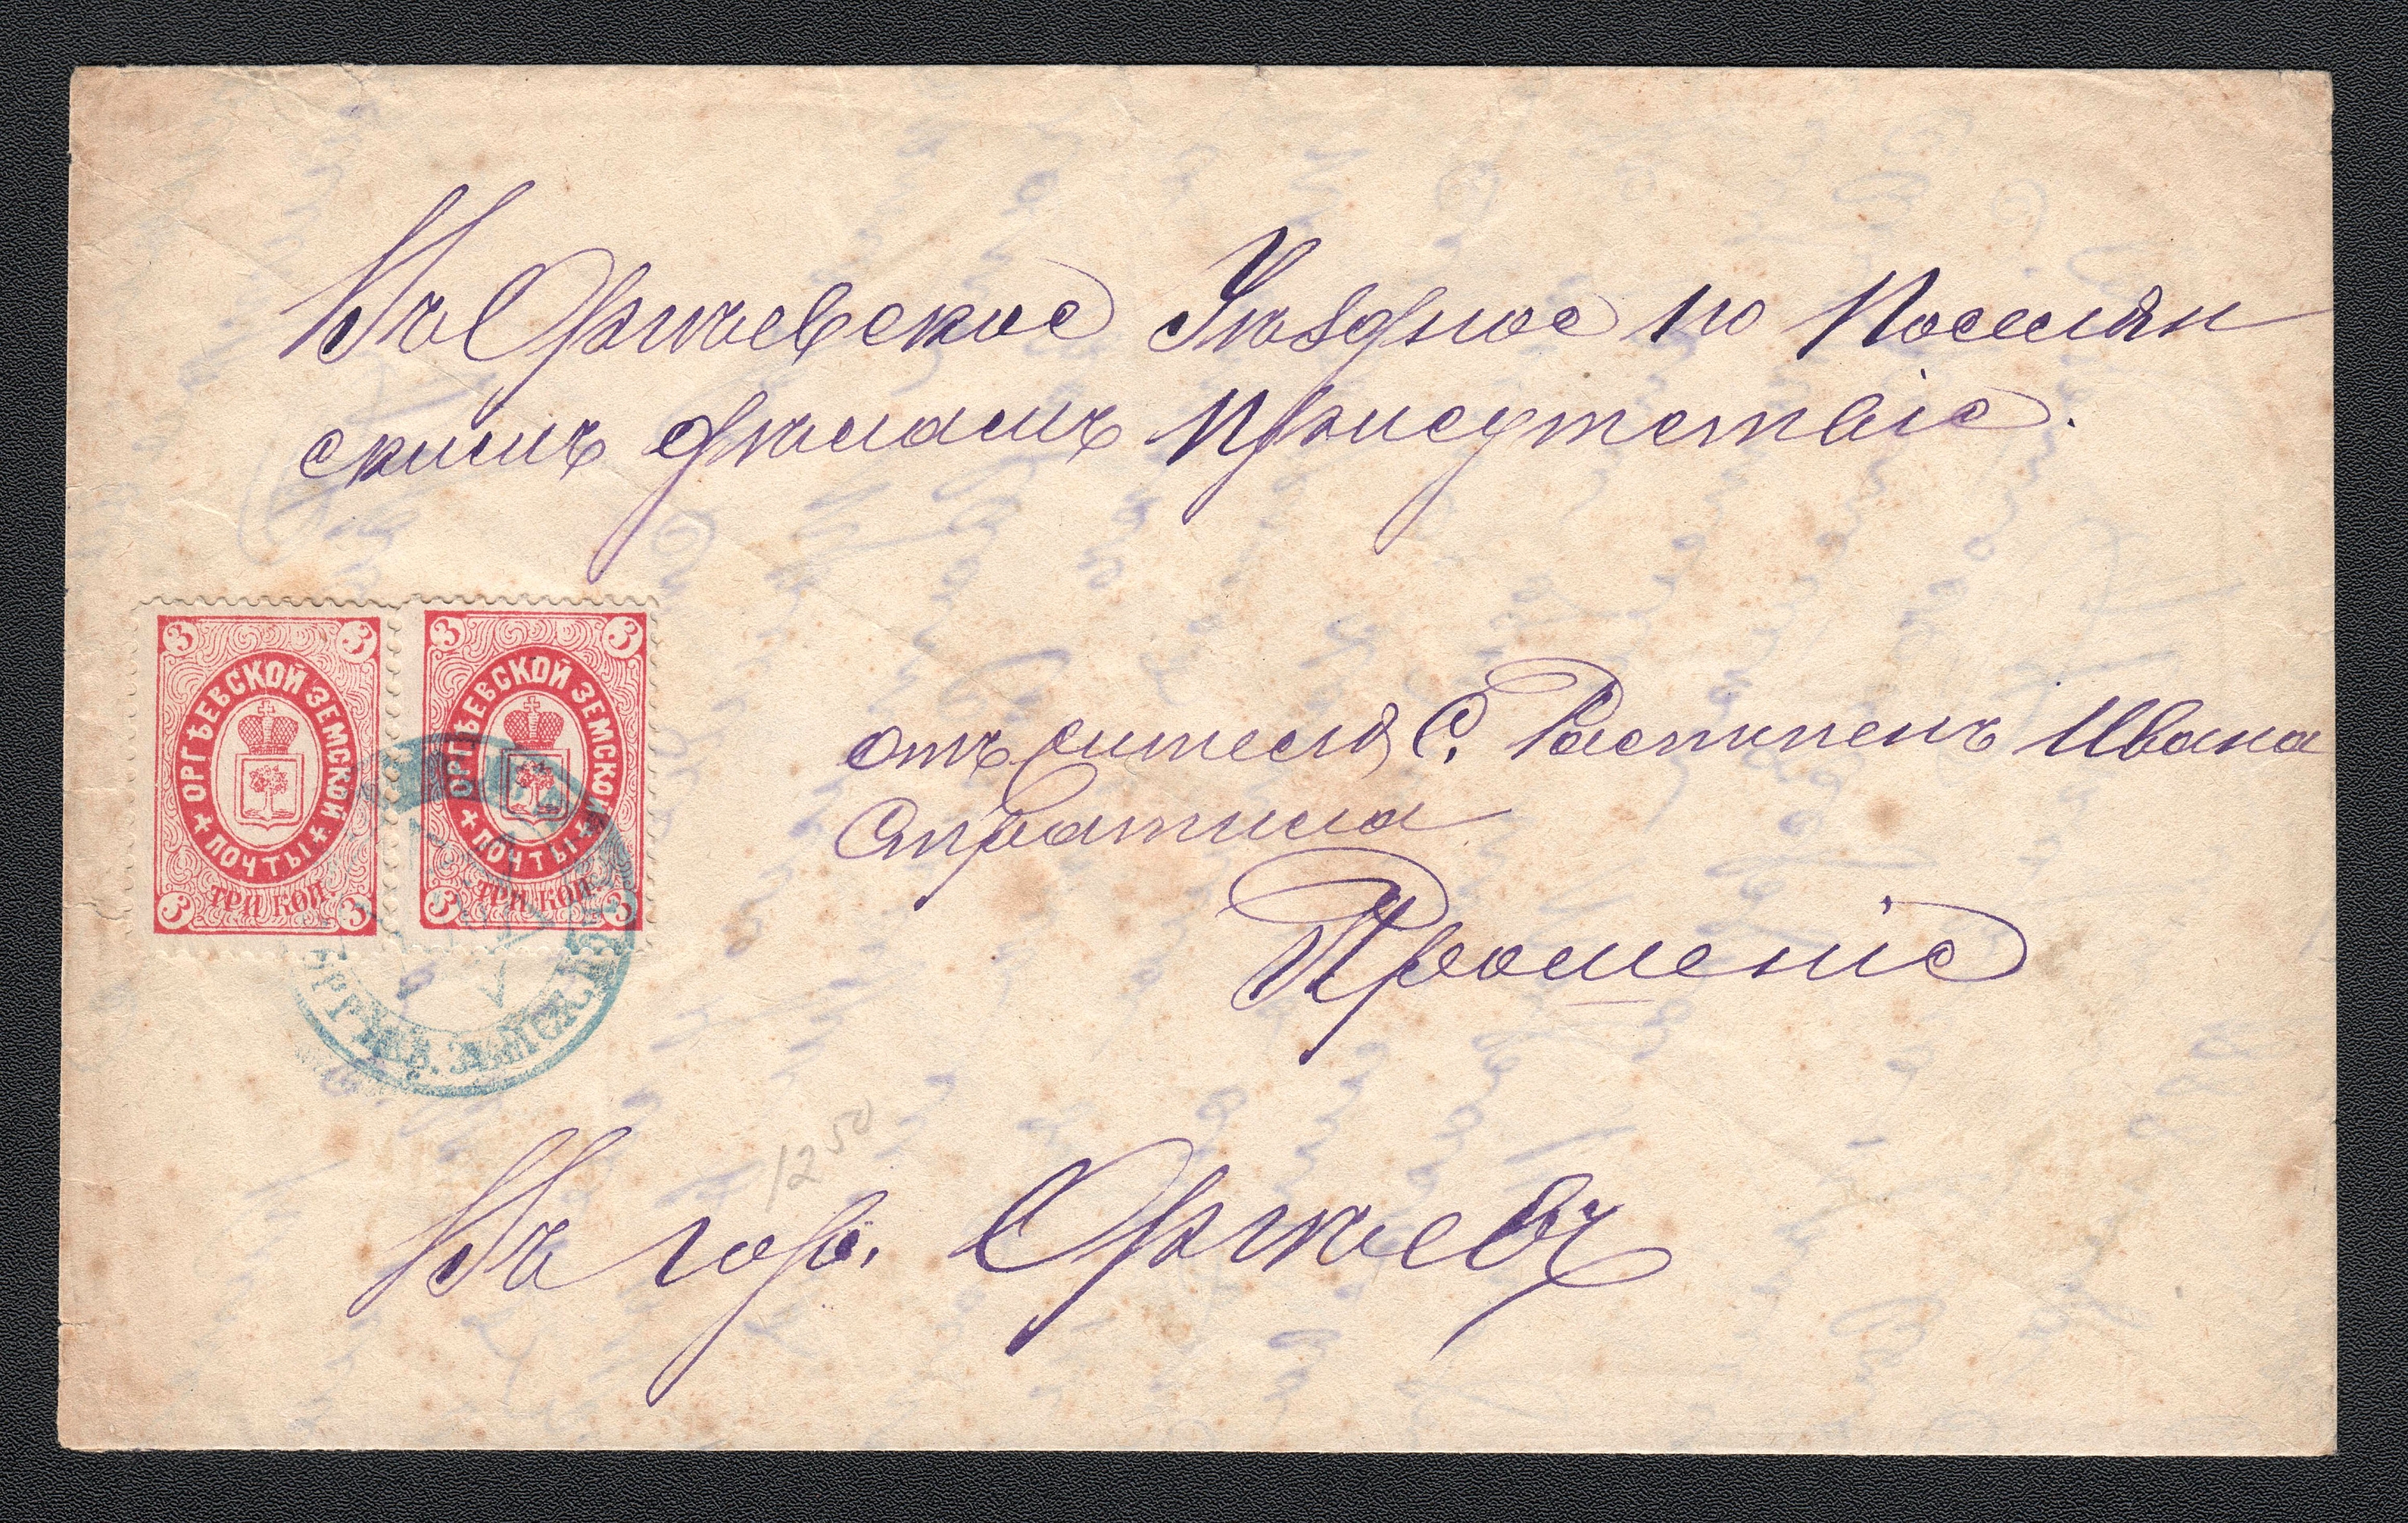 Въ Оргѣевское Уѣздное по Поселян
скимъ дѣламъ Присутствіе.
3 3
ОРГѢЕВСКОЙ ЗЕМСКОЙ
ПОЧТЫ
ТРИ КОП.
3 3
3 3
ОРГѢЕВСКОЙ ЗЕМСКОЙ
ПОЧТЫ
ТРИ КОП.
3 3
отъ жителя С. Ивана
Стратила
Прошеніе
1250
Въ гор. Оргѣевъ